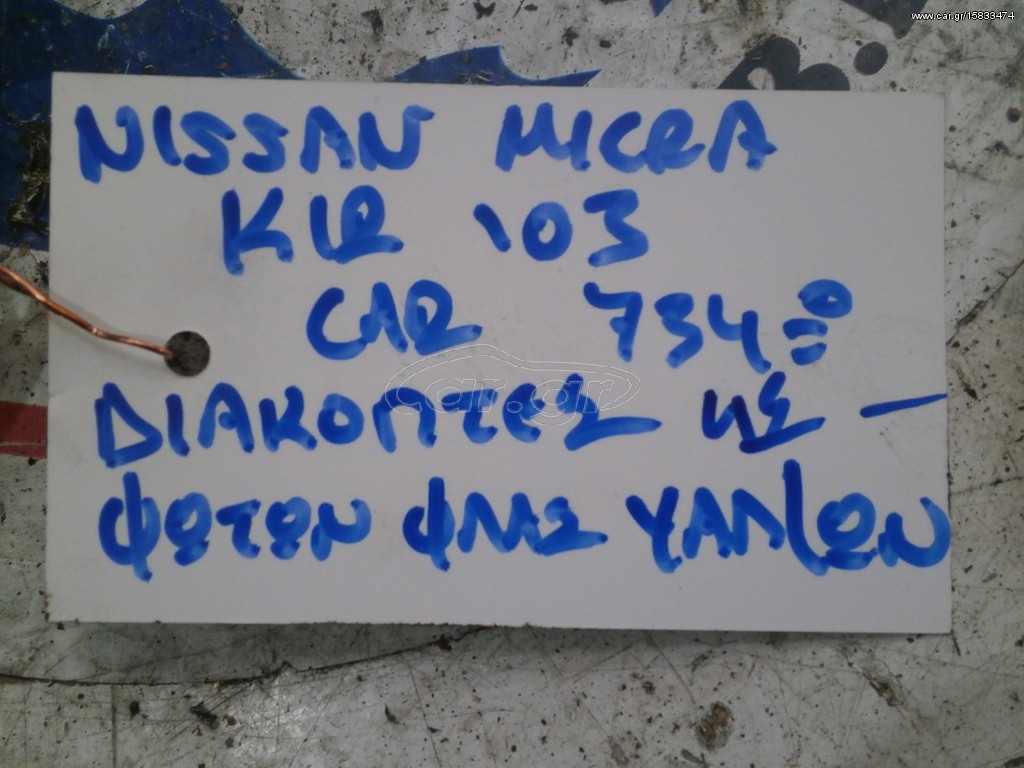 www.car.gr/15833474
NISSAN MICRA
K12 '03
CAR 734
ΔΙΑΚΟΠΤΕΣ
ΦΩΤΩΝ ΦΛΑΣ ΥΑΛ/ΩΝ